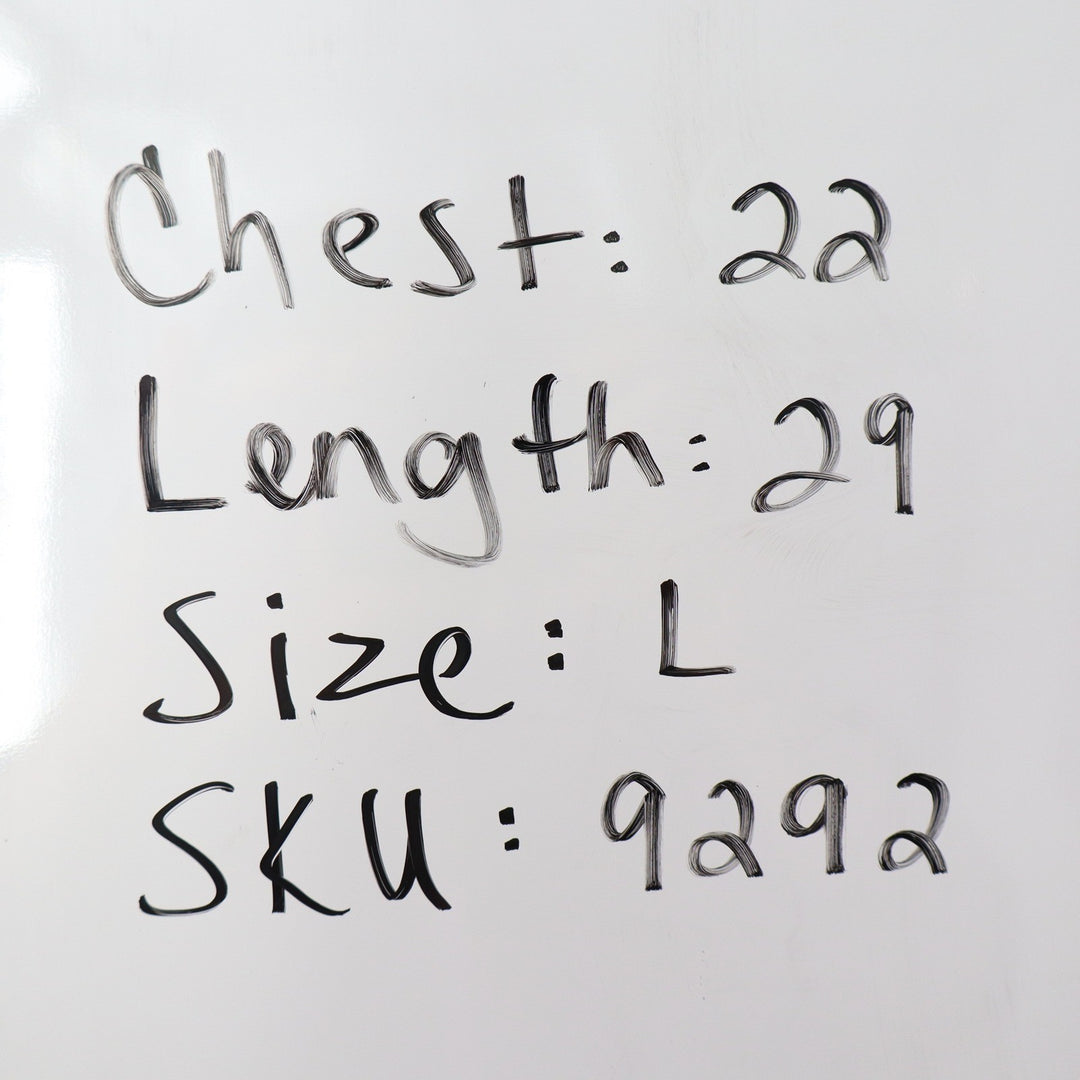 Chest: 22
Length: 29
Size: L
SKU: 9292